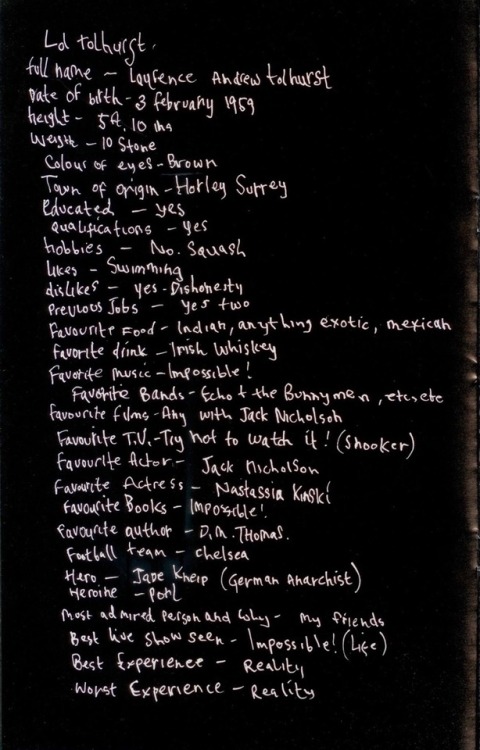 Lol tolhurst.
full name - Laurence Andrew tolhurst
Date of birth - 3 february 1959
height - 5ft. 10 ins
Weight - 10 Stone
Colour of eyes - Brown
Town of origin - Horley Surrey
Educated - yes
qualifications - yes
hobbies - No. Squash
likes - Swimming
dislikes - yes - Dishonesty
Previous Jobs - yes two
Favourite Food - Indian, anything exotic, mexican
favorite drink - Irish Whiskey
Favorite music - Impossible!
Favorite Bands - Echo + the Bunnymen, etc, etc
favourite films - Any with Jack Nicholson
Favourite T.V. - Try not to watch it! (Snooker)
Favourite Actor - Jack Nicholson
Favourite Actress - Nastassia Kinski
Favourite Books - Impossible!
Favourite author - D.M. Thomas.
Football team - Chelsea
Hero - (German Anarchist)
Heroine -
most admired person and why - my friends
Best live show seen - Impossible! (Life)
Best Experience - Reality
Worst Experience - Reality